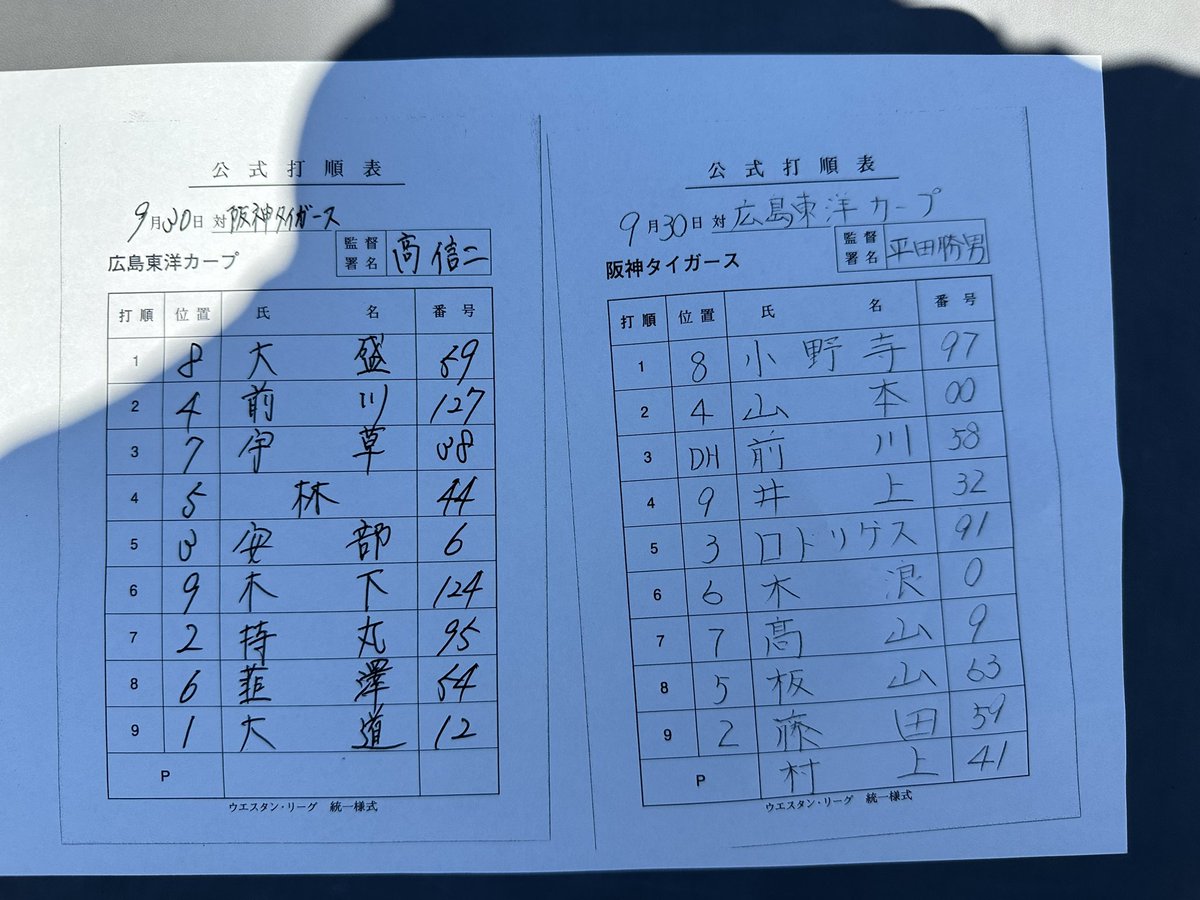 公式打順表
9月30日 対 阪神タイガース
広島東洋カープ 監督署名 高信二
打順 位置 氏名 番号
1 8 大盛 59
2 4 前川 127
3 7 宇草 38
4 5 林 44
5 3 安部 6
6 9 木下 124
7 2 持丸 95
8 6 韮澤 54
9 1 大道 12
P
ウエスタン・リーグ 統一様式
公式打順表
9月30日 対 広島東洋カープ
阪神タイガース 監督署名 平田勝男
打順 位置 氏名 番号
1 8 小野寺 97
2 4 山本 00
3 DH 前川 58
4 9 井上 32
5 3 ロドリゲス 91
6 6 木浪 0
7 7 髙山 9
8 5 板山 63
9 2 藤田 59
P 村上 41
ウエスタン・リーグ 統一様式